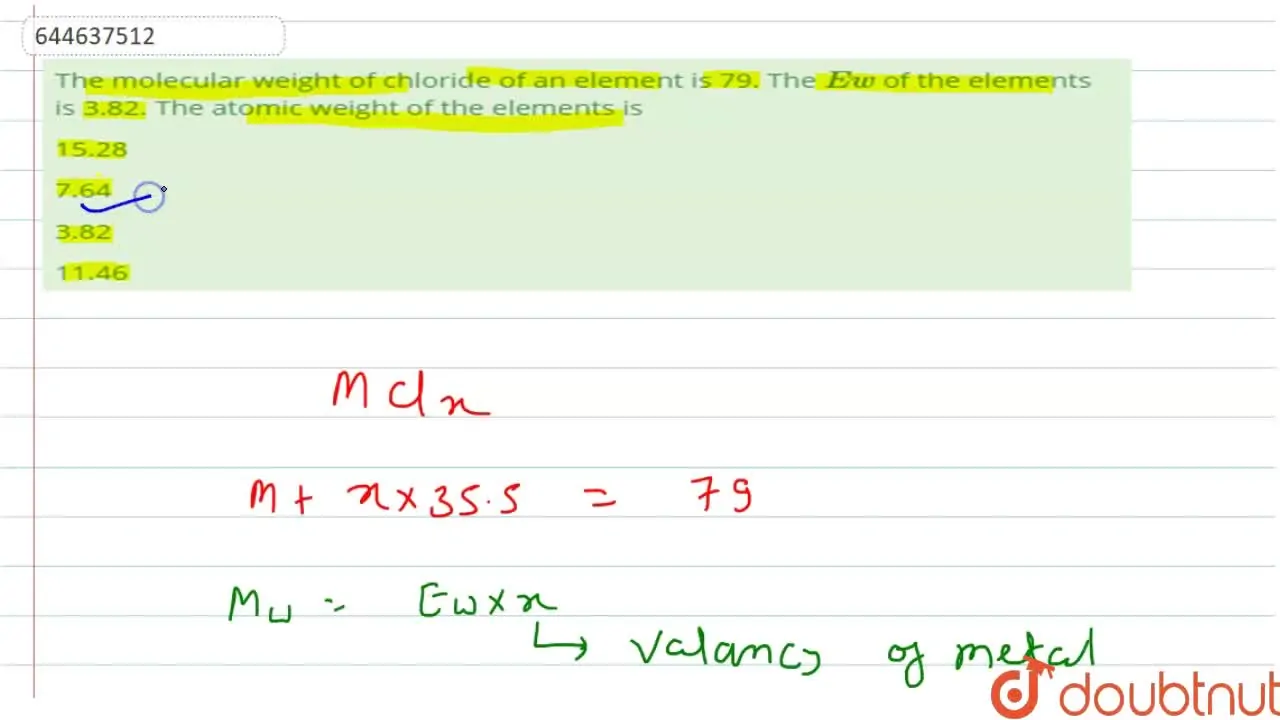 644637512
The molecular weight of chloride of an element is 79. The Ew of the elements
is 3.82. The atomic weight of the elements is
15.28
7.64
3.82
11.46
M Clx
M + x × 35.5 = 79
Mw = Ew × x
↳ valancy of metal
doubtnut